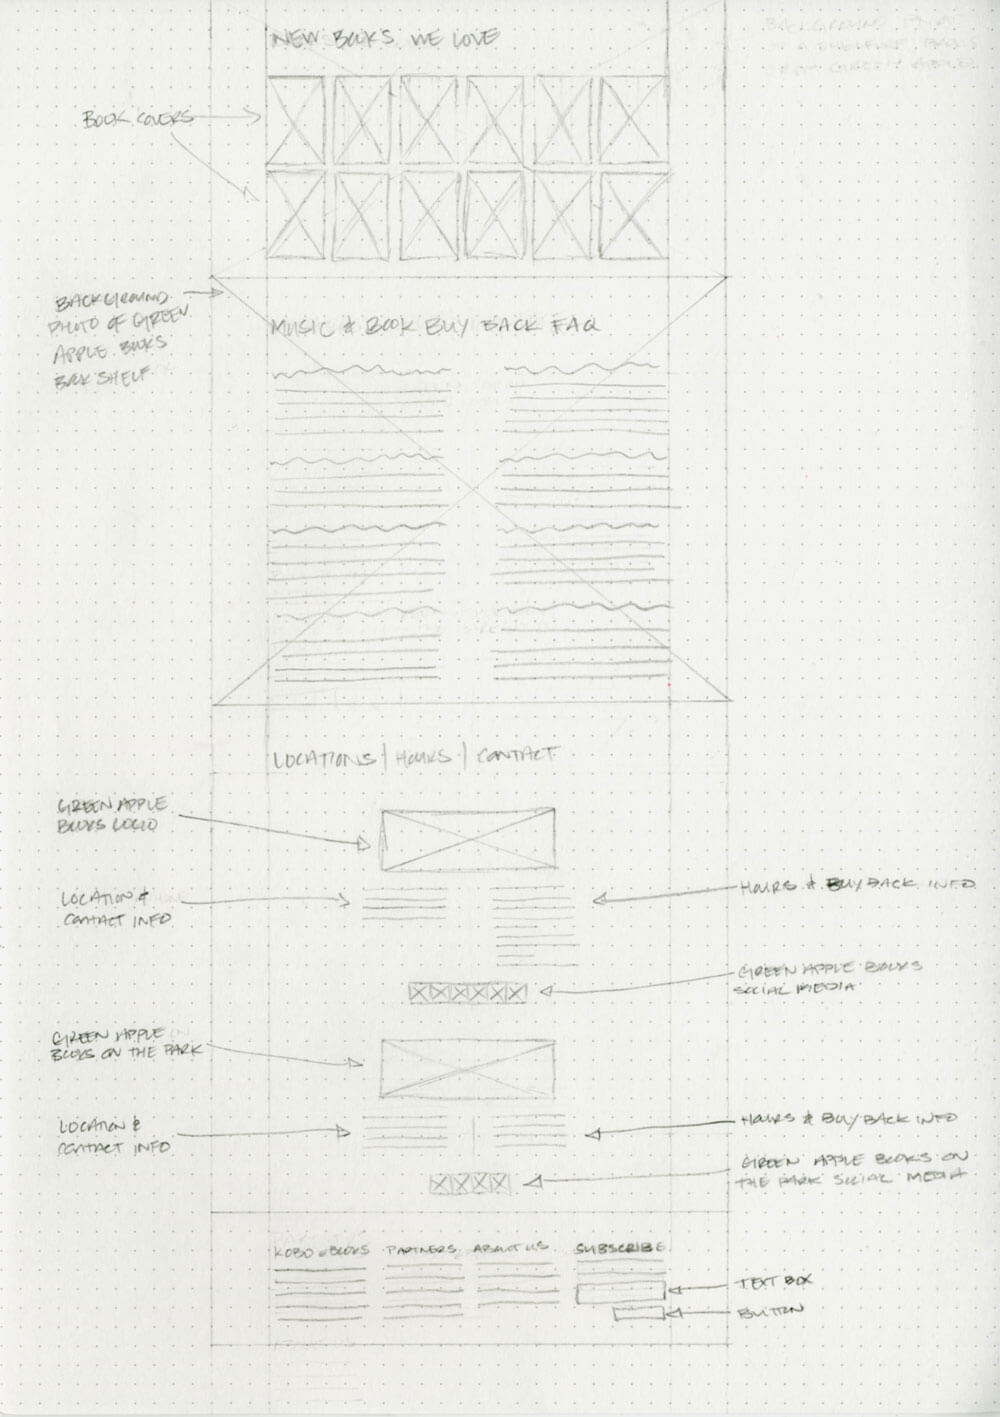 NEW BOOKS WE LOVE
BACKGROUND
BOOK COVERS
BACKGROUND
PHOTO OF GREEN
APPLE BOOKS
BOOK SHELF.
MUSIC & BOOK BUY BACK FAQ
LOCATIONS | HOURS | CONTACT
GREEN APPLE
BOOKS LOGO
LOCATION &
CONTACT INFO
HOURS & BUY BACK INFO
GREEN APPLE BOOKS
SOCIAL MEDIA
GREEN APPLE
BOOKS ON THE PARK
LOCATION &
CONTACT INFO
HOURS & BUY BACK INFO
GREEN APPLE BOOKS ON
THE PARK SOCIAL MEDIA
KOBO eBOOKS PARTNERS ABOUT US SUBSCRIBE
TEXT BOX
BUTTON